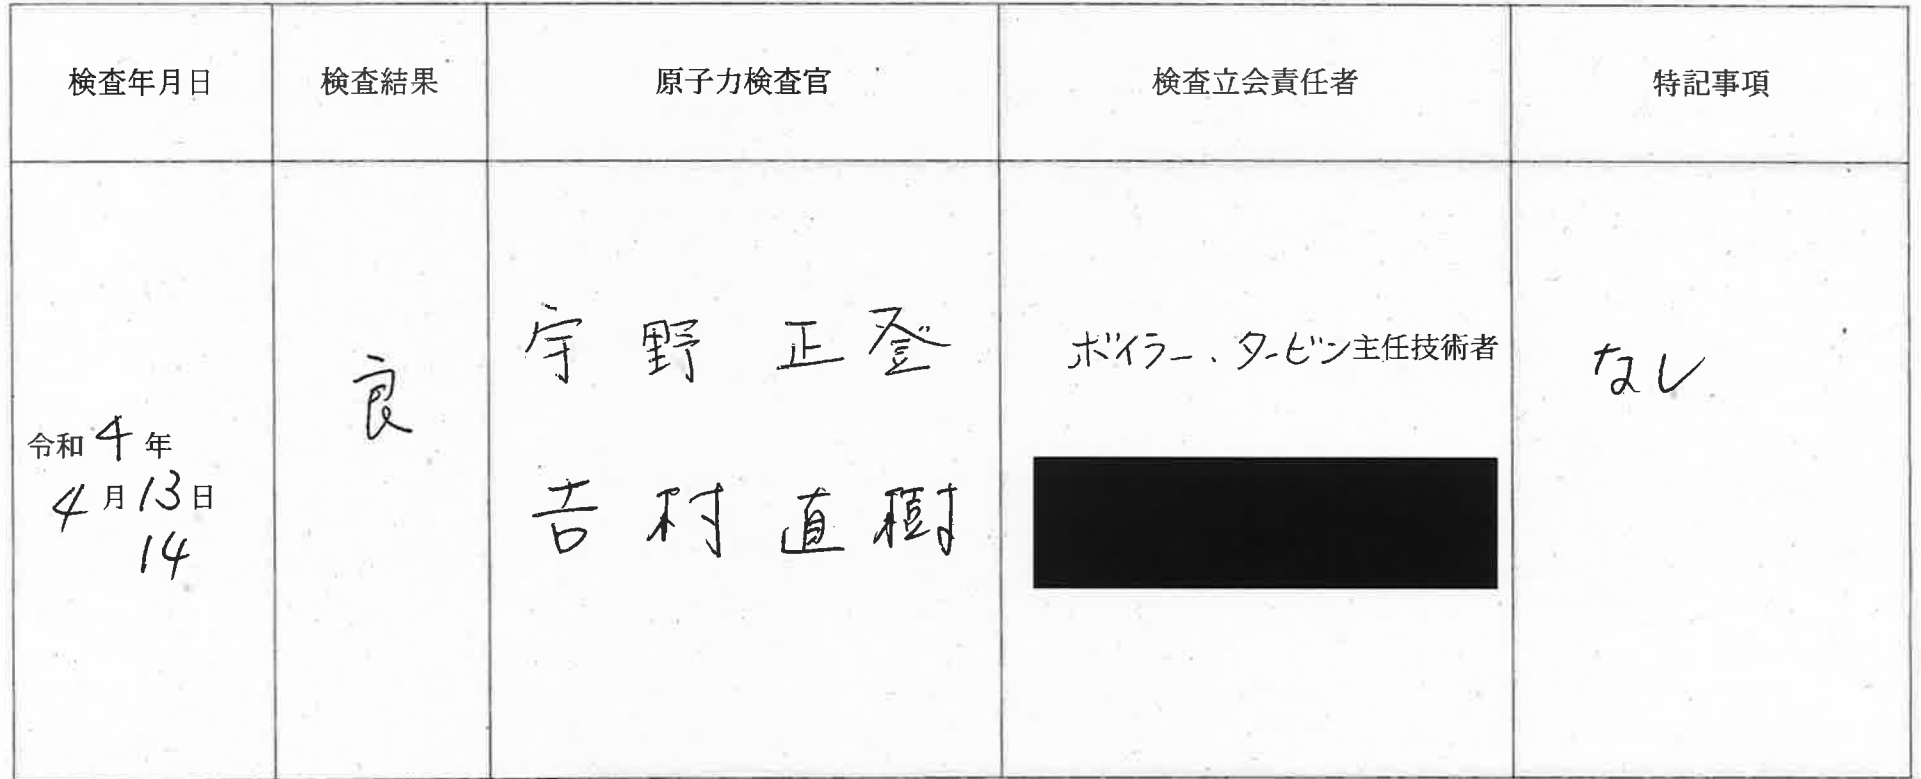 検査年月日 検査結果 原子力検査官 検査立会責任者 特記事項
令和4年
4月13日
14
良
宇野正登
吉村直樹
ボイラー、タービン主任技術者
なし